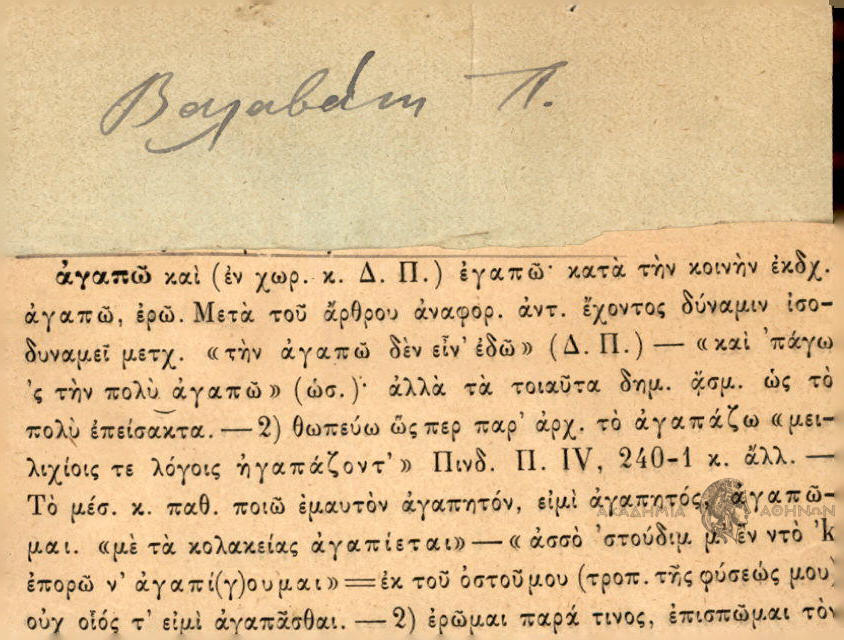 Βαλαβάνη Π.
ἀγαπῶ καὶ (ἐν χωρ. κ. Δ. Π.) ἐγαπῶ· κατὰ τὴν κοινὴν ἐκδχ.
ἀγαπῶ, ἐρῶ. Μετὰ τοῦ ἄρθρου ἀναφορ. ἀντ. ἔχοντος δύναμιν ἰσο-
δυναμεῖ μετχ. «τὴν ἀγαπῶ δὲν εἶν' ἐδῶ» (Δ. Π.) — «καὶ 'πάγω
'ς τὴν πολὺ ἀγαπῶ» (ὡσ.)· ἀλλὰ τὰ τοιαῦτα δημ. ᾄσμ. ὡς τὸ
πολὺ ἐπείσακτα. — 2) θωπεύω ὥς περ παρ' ἀρχ. τὸ ἀγαπάζω «μει-
λιχίοις τε λόγοις ἠγαπάζοντ'» Πινδ. Π. IV, 240-1 κ. ἄλλ. —
Τὸ μέσ. κ. παθ. ποιῶ ἐμαυτὸν ἀγαπητόν, εἰμὶ ἀγαπητός, ἀγαπῶ-
μαι. «μὲ τὰ κολακείας ἀγαπίεται» — «ἀσσὸ 'στούδιμ μ' ἓν ντὸ 'κ
ἐπορῶ ν' ἀγαπί(γ)ουμαι» = ἐκ τοῦ ὀστοῦ μου (τροπ. τῆς φύσεώς μου)
οὐχ οἷός τ' εἰμὶ ἀγαπᾶσθαι. — 2) ἐρῶμαι παρά τινος, ἐπισπῶμαι τὸν
ΑΚΑΔΗΜΙΑ ΑΘΗΝΩΝ